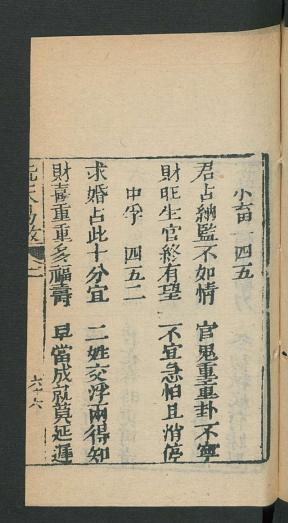 小畜一四五
君占納監不如情　官鬼重重卦不寧
財旺生官終有望　不宜急怕且消停
中孚　四五二
求婚占此十分宜　二姓交浮兩得知
財喜重重多福壽　早當成就莫延遲
卷二　六十六